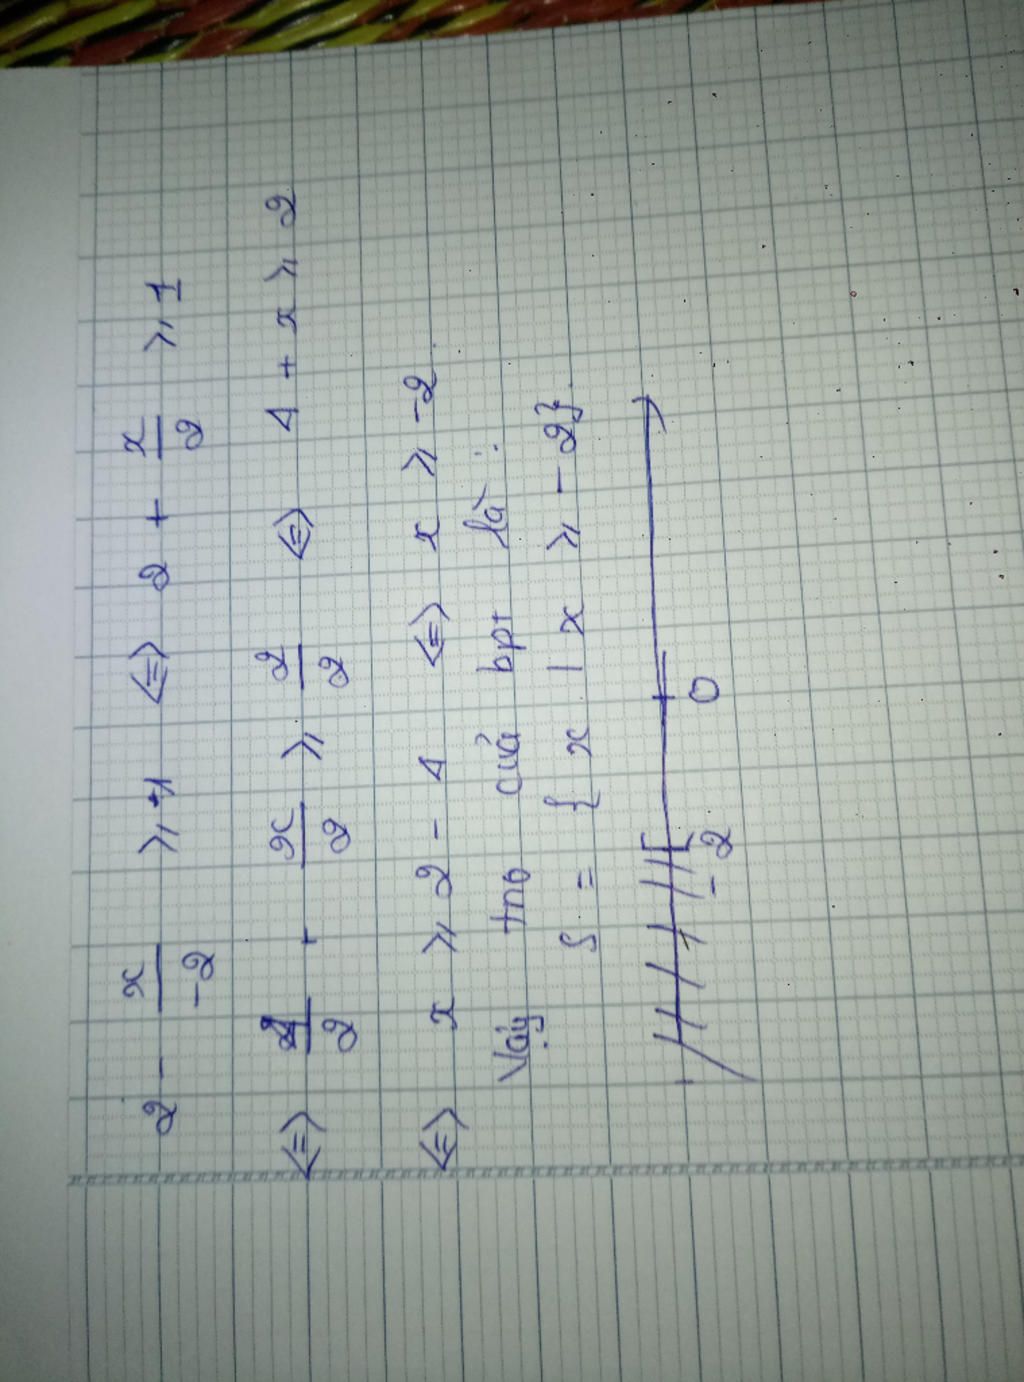 2 - x/-2 ⩾ +1 <=> 2 + x/2 ⩾ 1
<=> 4/2 + x/2 ⩾ 2/2 <=> 4 + x ⩾ 2
<=> x ⩾ 2 - 4 <=> x ⩾ -2
Vậy tno của bpt là :
S = { x | x ⩾ - 2}.
-2 0